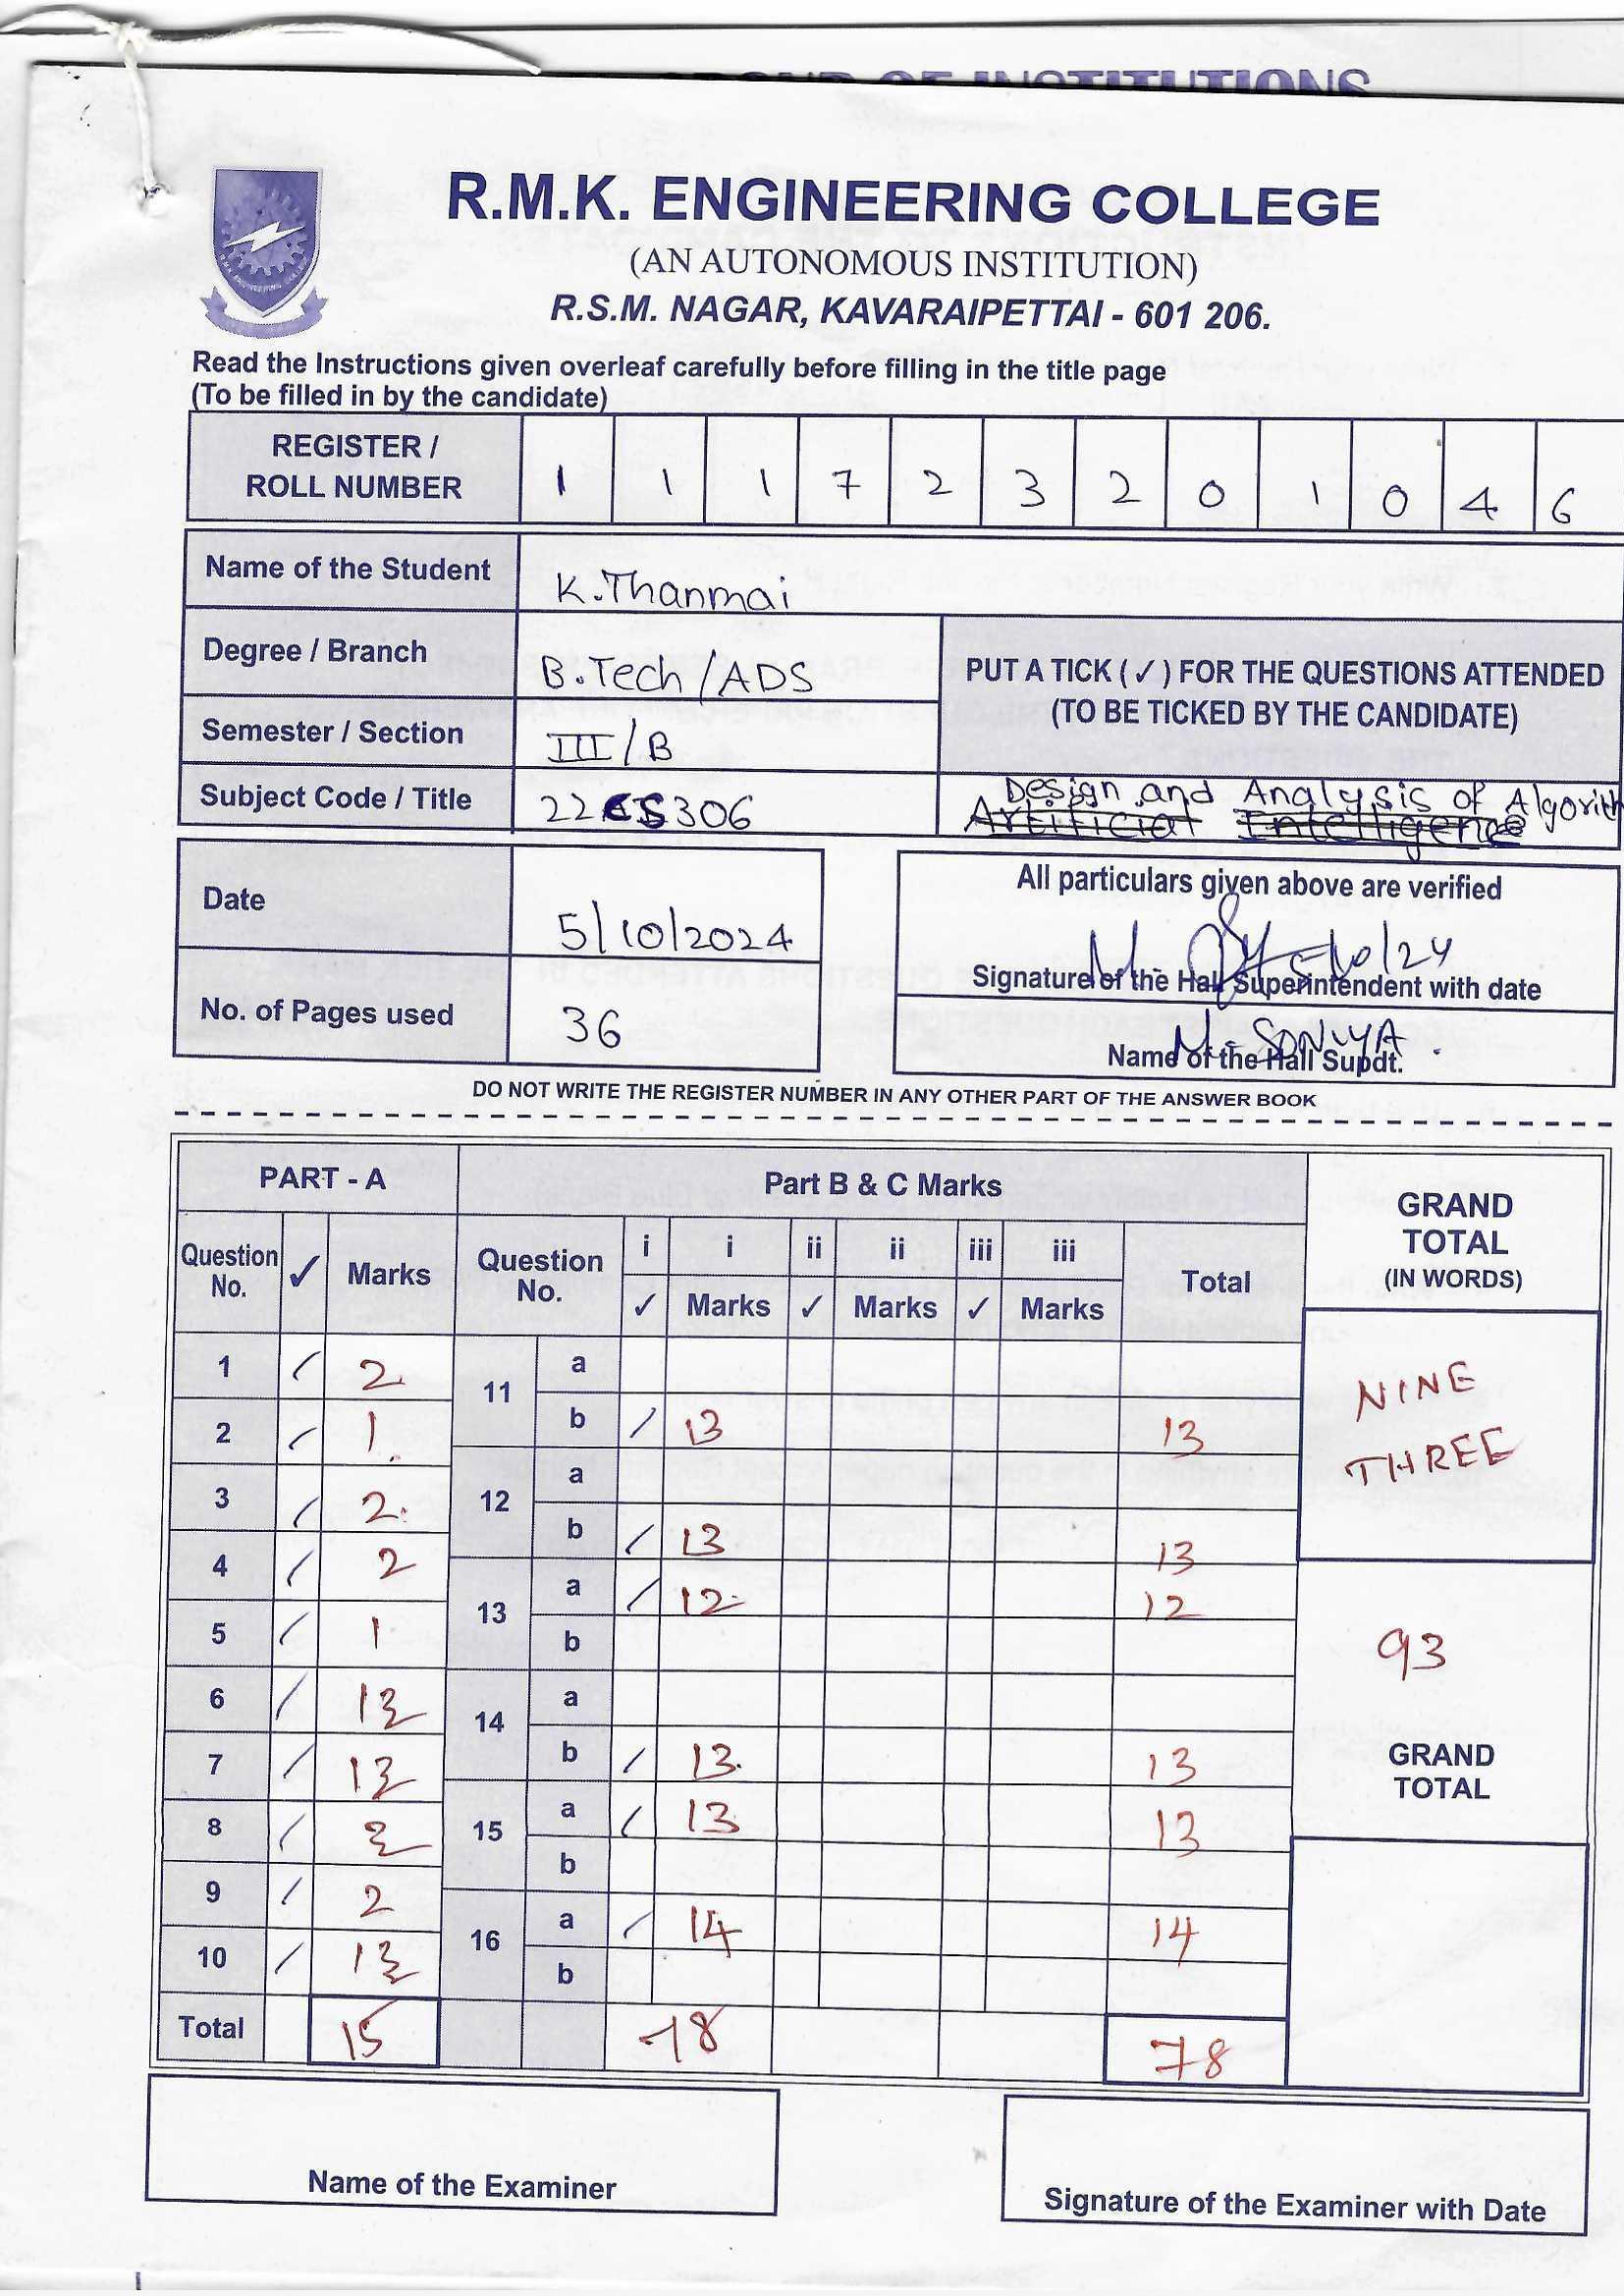 R.M.K. ENGINEERING COLLEGE
(AN AUTONOMOUS INSTITUTION)
R.S.M. NAGAR, KAVARAIPETTAI - 601 206.
Read the Instructions given overleaf carefully before filling in the title page
(To be filled in by the candidate)
REGISTER / ROLL NUMBER 1 1 1 7 2 3 2 0 1 0 4 6
Name of the Student K.Thanmai
Degree / Branch B.Tech/ADS
PUT A TICK (✓) FOR THE QUESTIONS ATTENDED
(TO BE TICKED BY THE CANDIDATE)
Semester / Section III/B
Subject Code / Title 22CS306 Design and Analysis of Algorith
Artificial Intelligence
Date 5/10/2024
No. of Pages used 36
All particulars given above are verified
5/10/24
Signature of the Hall Superintendent with date
M. SONIYA.
Name of the Hall Supdt.
DO NOT WRITE THE REGISTER NUMBER IN ANY OTHER PART OF THE ANSWER BOOK
PART - A Part B & C Marks GRAND TOTAL (IN WORDS)
Question No. ✓ Marks Question No. i ✓ i Marks ii ✓ ii Marks iii ✓ iii Marks Total
1 / 2 11 a
2 / 1 b / 13 13
NINE THREE
3 / 2 12 a
b / 13 13
4 / 2 13 a / 12 12
5 / 1 b
93
6 / 1½ 14 a
7 / 1½ b / 13 13
GRAND TOTAL
8 / 15 a / 13 13
b
9 / 2 16 a / 14 14
10 / 1½ b
Total 15 78 78
Name of the Examiner
Signature of the Examiner with Date